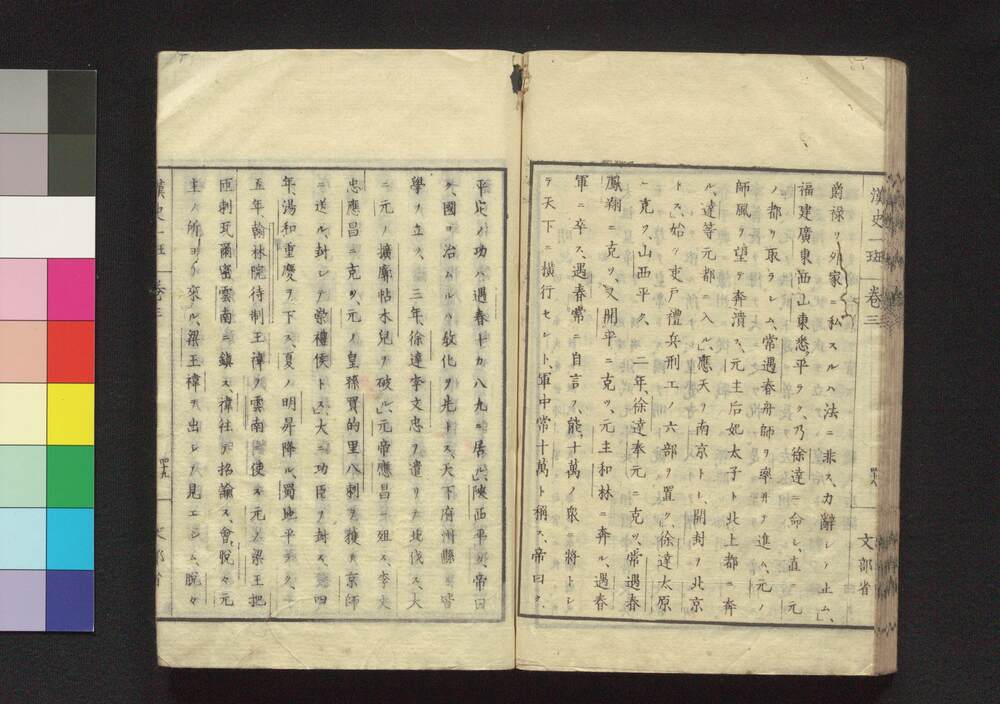 漢史一班 卷三 四十八 文部省
爵祿ヲ外家ニ私スルハ法ニ非ス力辭シテ止ム、
福建廣東西山東悉ク平ラク、乃徐達ニ命シ、直ニ元
ノ都ヲ取ラシム、常遇春舟師ヲ率井テ進ム、元ノ
師風ヲ望テ奔潰ス、元主后妃太子ト北上都ニ奔
ル、達等元都ニ入ル、應天ヲ南京トシ、開封ヲ北京
トス、始テ吏戸禮兵刑工ノ六部ヲ置ク、徐達太原
ニ克ツ、山西平ク、二年、徐達奉元ニ克ツ、常遇春
鳳翔ニ克ツ、又開平ニ克ツ、元主和林ニ奔ル、遇春
軍ニ卒ス、遇春常ニ自言フ、能ク十萬ノ衆ヲ將トシ
テ天下ニ横行セント、軍中常十萬ト稱ス、帝曰ク、
平定ノ功ハ遇春十カ八九ニ居ル、陝西平ク、帝曰
ク、國ヲ治ムルハ敎化ヲ先トス、天下府州縣ニ皆
學ヲ立ツ、三年、徐達李文忠ヲ遣リテ北伐ス、大
ニ元ノ擴廓帖木兒ヲ破ル、元帝應昌ニ殂ス、李文
忠應昌ニ克ツ、元ノ皇孫買的里八剌ヲ獲テ京師
ニ送ル、封シテ崇禮侯トス、大ニ功臣ヲ封ス、四
年、湯和重慶ヲ下ス、夏ノ明昇降ル、蜀地平ラク、
五年、翰林院待制王褘ヲ雲南ニ使ス、元ノ梁王把
匝剌瓦爾密雲南ニ鎭ス、褘往テ招諭ス、會脫々元
主ノ所ヨリ來ル、梁王褘ヲ出シテ見エシム、脫々
漢史一班 卷三 四十九 文部省